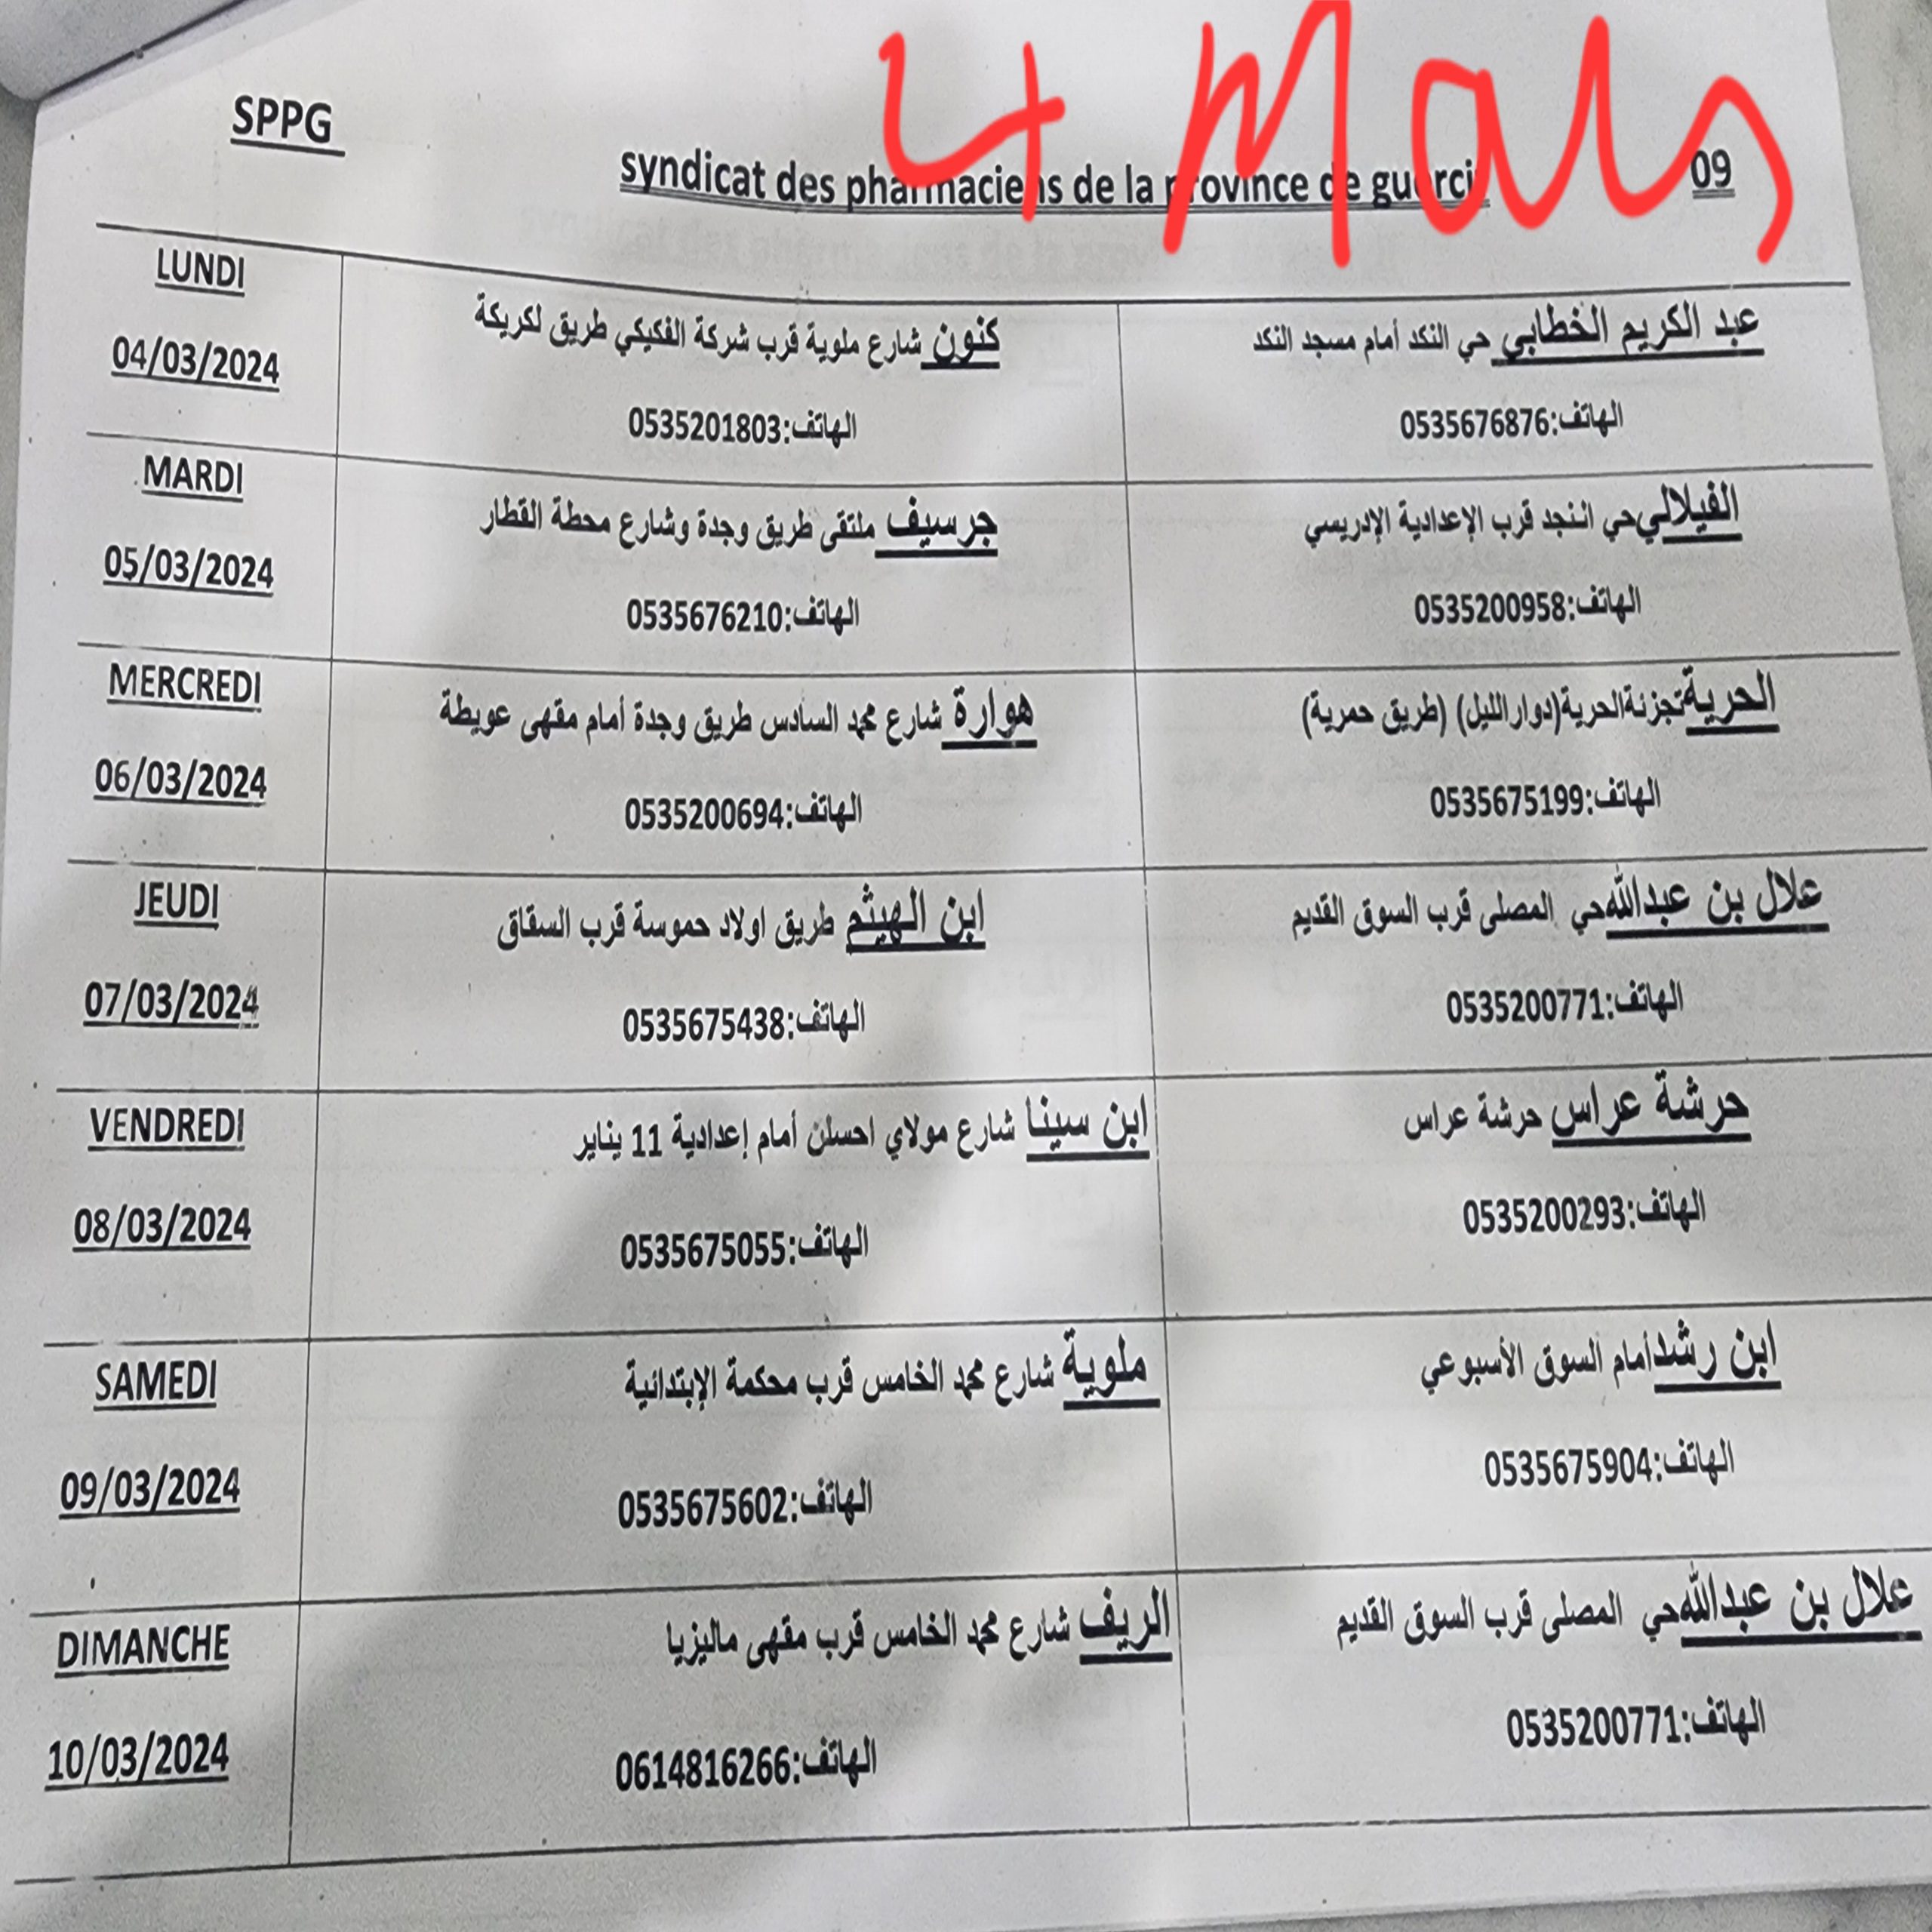 4 Mars
SPPG
syndicat des pharmaciens de la province de guercif
09
LUNDI
04/03/2024
كنون شارع ملوية قرب شركة الفكيكي طريق لكريكة
الهاتف:0535201803
عبد الكريم الخطابي حي النكد أمام مسجد النكد
الهاتف:0535676876
MARDI
05/03/2024
جرسيف ملتقى طريق وجدة وشارع محطة القطار
الهاتف:0535676210
الفيلالي حي النجد قرب الإعدادية الإدريسي
الهاتف:0535200958
MERCREDI
06/03/2024
هوارة شارع محمد السادس طريق وجدة أمام مقهى عويطة
الهاتف:0535200694
الحرية تجزئة الحرية (دوار الليل) (طريق حمرية)
الهاتف:0535675199
JEUDI
07/03/2024
ابن الهيثم طريق اولاد حموسة قرب السقاق
الهاتف:0535675438
علال بن عبدالله حي المصلى قرب السوق القديم
الهاتف:0535200771
VENDREDI
08/03/2024
ابن سينا شارع مولاي احسلن أمام إعدادية 11 يناير
الهاتف:0535675055
حرشة عراس حرشة عراس
الهاتف:0535200293
SAMEDI
09/03/2024
ملوية شارع محمد الخامس قرب محكمة الإبتدائية
الهاتف:0535675602
ابن رشد أمام السوق الأسبوعي
الهاتف:0535675904
DIMANCHE
10/03/2024
الريف شارع محمد الخامس قرب مقهى ماليزيا
الهاتف:0614816266
علال بن عبدالله حي المصلى قرب السوق القديم
الهاتف:0535200771